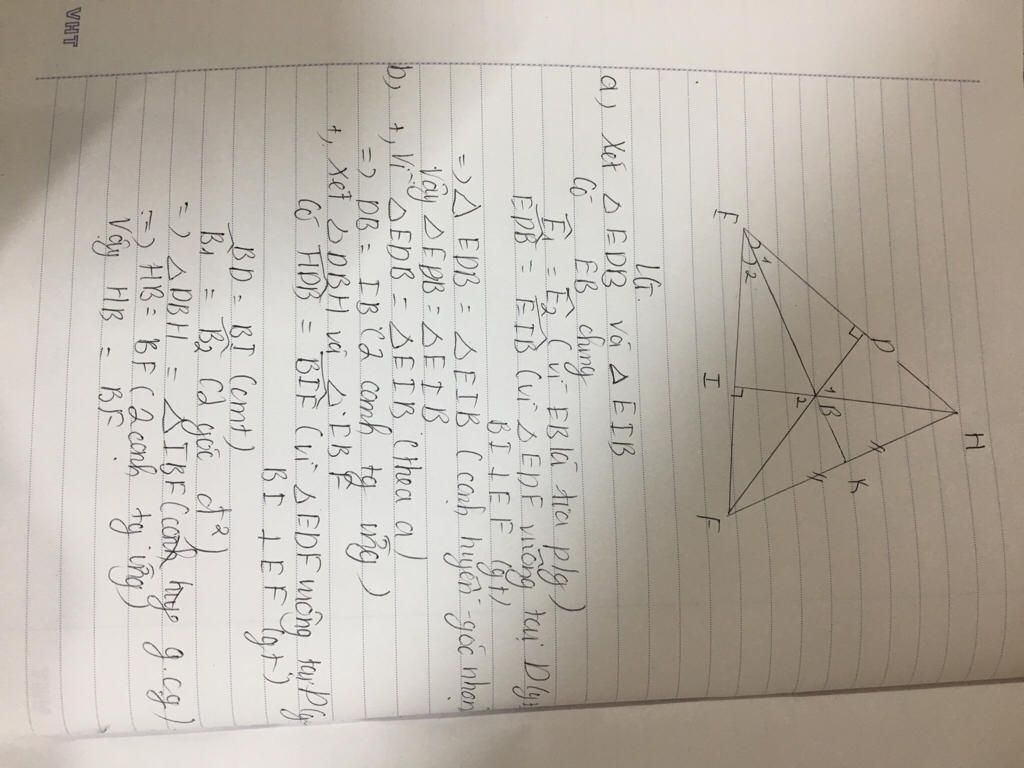 VHT
H
D
K
1
B
2
E
1
2
I
F
LG.
a, Xét △ EDB và △ EIB
Có EB chung
E1 = E2 (vì EB là tia plg)
EDB = EIB (vì △ EDF vuông tại D (gt)
BI ⊥ EF (gt)
=) △ EDB = △ EIB (cạnh huyền - góc nhọn)
Vậy △ EDB = △ EIB
b, +, Vì △ EDB = △ EIB (theo a)
=) DB = IB (2 cạnh tg ứng)
+, Xét △ DBH và △
Có HDB = BIF (vì △ EDF vuông tại D (gt)
BI ⊥ EF (gt)
BD = BI (cmt)
B1 = B2 (2 góc đ²)
=) △ DBH = △ IBF (g.cg)
=) HB = BF (2 cạnh tg ứng)
Vậy HB = BF.